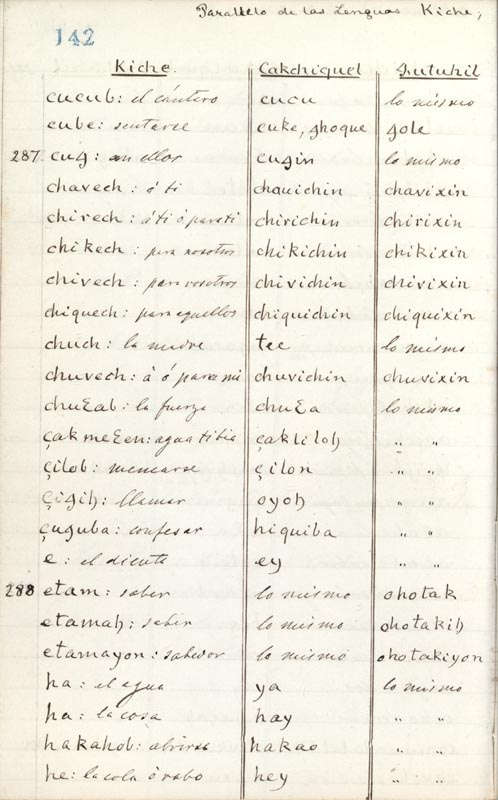 Paralelo de las Lenguas Kiche,
142
Kiche. Cakchiquel Sutuhil
cucub: el cántaro cucu lo mismo
cube: sentarse cuke, ghoque gole
287 cug: an ellos cugin lo mismo
chavech: á ti chauichin chavixin
chirech: á ti ó para ti chirichin chirixin
chikech: para nosotros chikichin chikixin
chivech: para vosotros chivichin chivixin
chiquech: para aquellos chiquichin chiquixin
chuch: la madre tee lo mismo
chuvech: á ó para mi chuvichin chuvixin
chuƐab: la fuerza chuƐa lo mismo
çakmeƐen: agua tibia çakliloh " "
çilob: menearse çilon " "
çigih: llamar oyoh " "
çuguba: confesar hiquiba " "
e: el diente ey " "
288 etam: saber lo mismo ohotak
etamah: saber lo mismo ohotakih
etamayon: sabedor lo mismo ohotakiyon
ha: el agua ya lo mismo
ha: la cosa hay " "
hakahob: abrirse hakao " "
he: la cola ó rabo hey " "